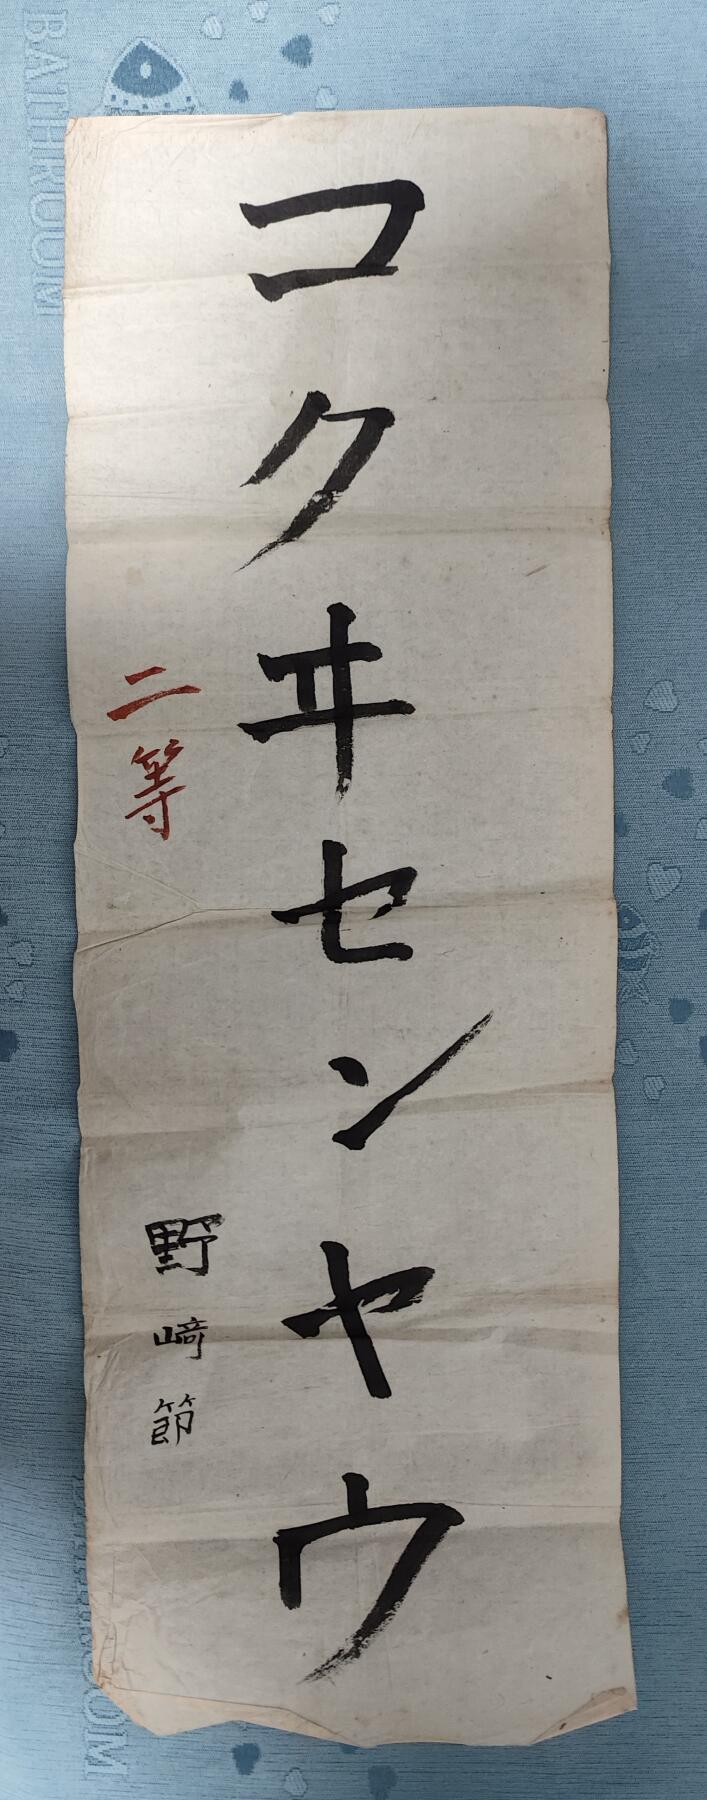 コクヰセンヤウ
二等
野﨑節
BATHROOM